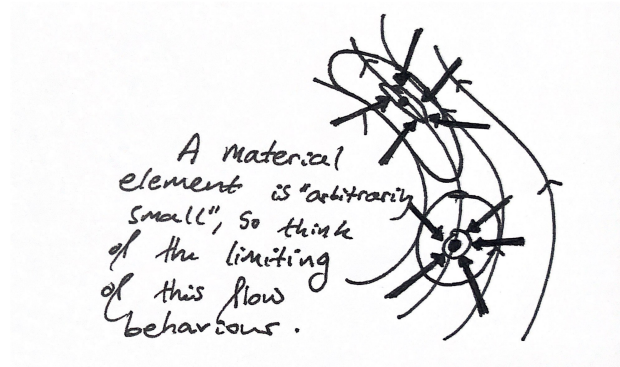 A material
element is "arbitrarily
small", so think
of the limiting
of this flow
behaviour.